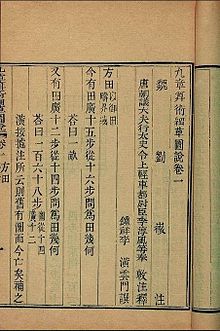 九章算術細草圖說卷一
魏 劉 徽 注
唐朝議大夫行太史令上輕車都尉臣李淳風等奉 敕注釋
鍾祥李 潢雲門譔
方田 以御田疇界域
今有田廣十五步從十六步問為田幾何
荅曰一畝
又有田廣十二步從十四步問為田幾何
荅曰一百六十八步 圖從十四廣十二
潢按注所云則舊有圖而今亡矣補之
方田
一